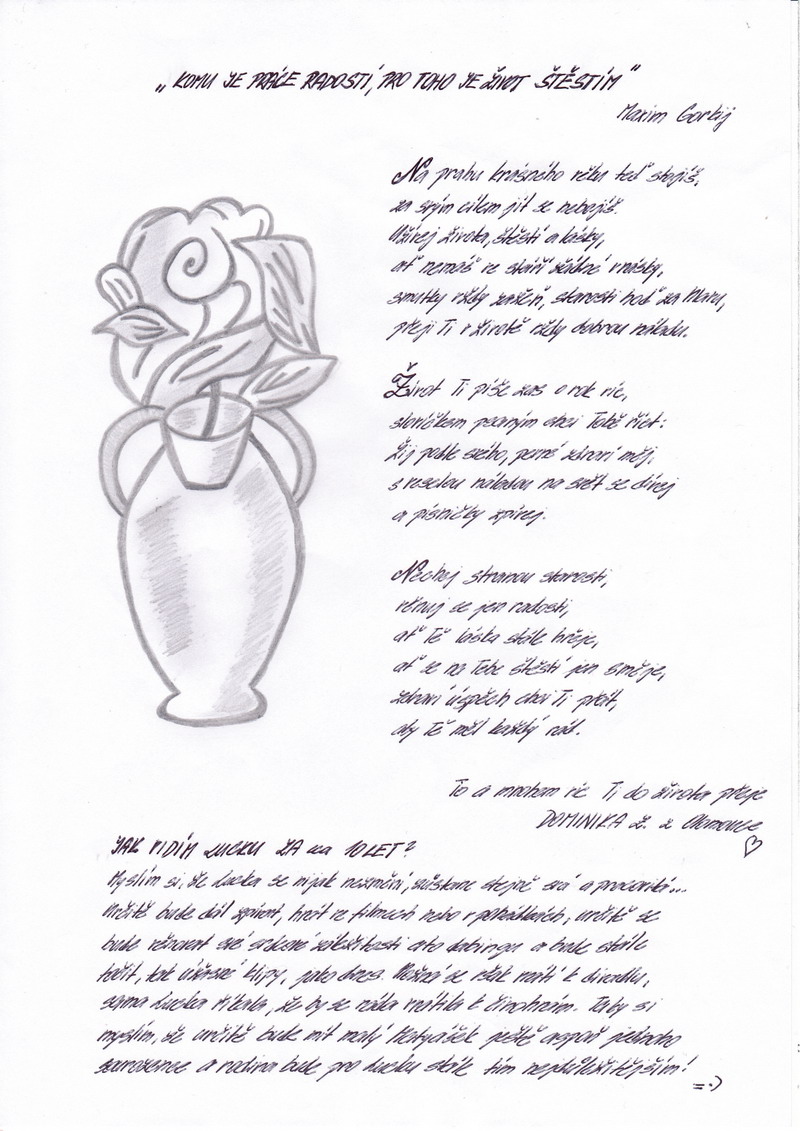 „KOMU JE PRÁCE RADOSTÍ, PRO TOHO JE ŽIVOT ŠTĚSTÍM“
Maxim Gorkij
Na prahu krásného věku teď stojíš,
za svým cílem jít se nebojíš.
Užívej života, štěstí a lásky,
ať nemáš ve stáří žádné vrásky,
smutky vždy zažeň, starosti hoď za hlavu,
přeji Ti v životě vždy dobrou náladu.
Život Ti píše zas o rok víc,
slovíčkem psaným chci Tobě říct:
Žij podle svého, pevné zdraví měj,
s veselou náladou na svět se dívej
a písničky zpívej.
Nechej stranou starosti,
věnuj se jen radosti,
ať Tě láska stále hřeje,
ať se na Tebe štěstí jen směje,
zdraví úspěch chci Ti přát,
aby Tě měl každý rád.
To a mnohem víc Ti do života přeje
DOMINIKA Ž. z Olomouce
JAK VIDÍM LUCKU ZA 10 LET?
Myslím si, že Lucka se nijak nezmění, zůstane stejně svá a pracovitá...
Určitě bude dál zpívat, hrát ve filmech nebo v pohádkách, určitě se
bude věnovat své srdcové záležitosti a to dabingu a bude stále
točit, tak úžasné klipy, jako dnes. Možná se však vrátí k divadlu,
sama Lucka říkala, že by se ráda vrátila k činohrám. Taky si
myslím, že určitě bude mít malý Matyášek ještě aspoň jednoho
sourozence a rodina bude pro Lucku stále tím nejdůležitějším!
=.)